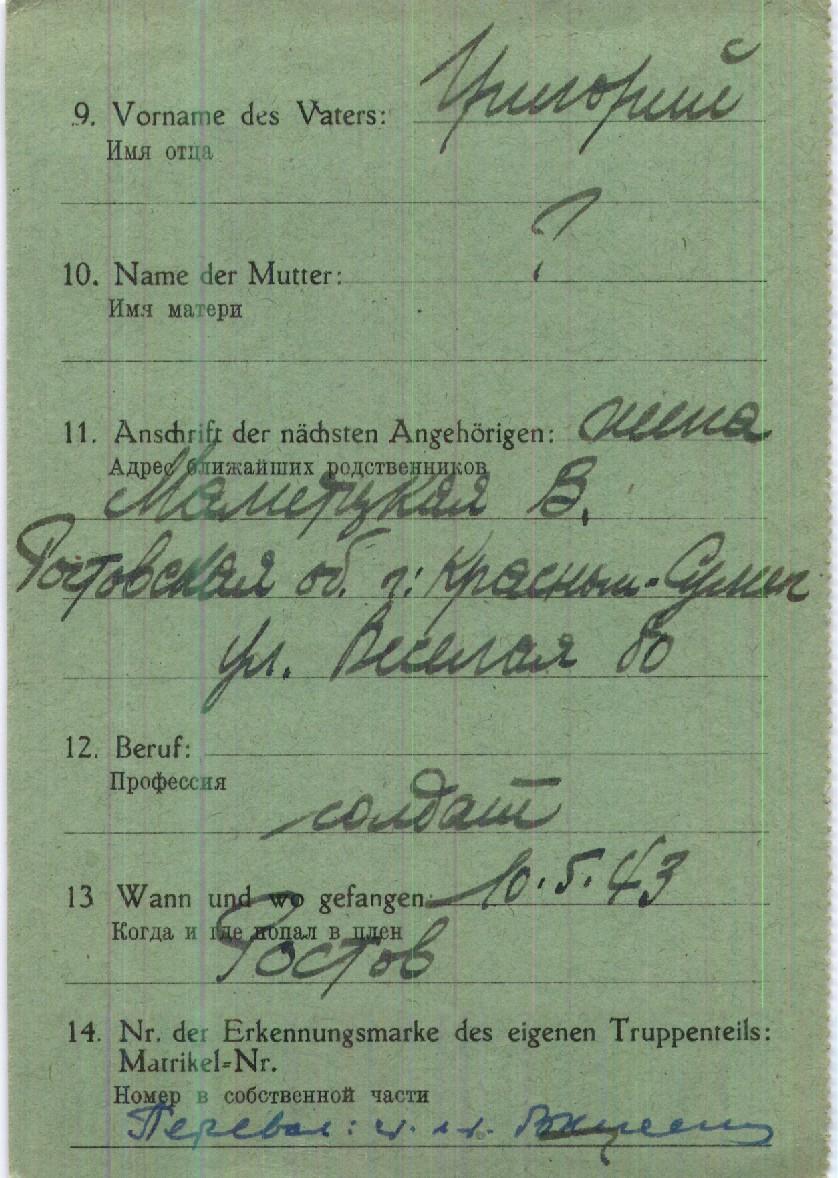 9. Vorname des Vaters: Григорий
Имя отца
10. Name der Mutter: ?
Имя матери
11. Anschrift der nächsten Angehörigen: жена
Адрес ближайших родственников
В.
Ростовская об. г:
ул. Веселая 80
12. Beruf:
Профессия
солдат
13 Wann und wo gefangen: 10.5.43
Когда и где попал в плен
Ростов
14. Nr. der Erkennungsmarke des eigenen Truppenteils:
Matrikel=Nr.
Номер в собственной части
Перевел: